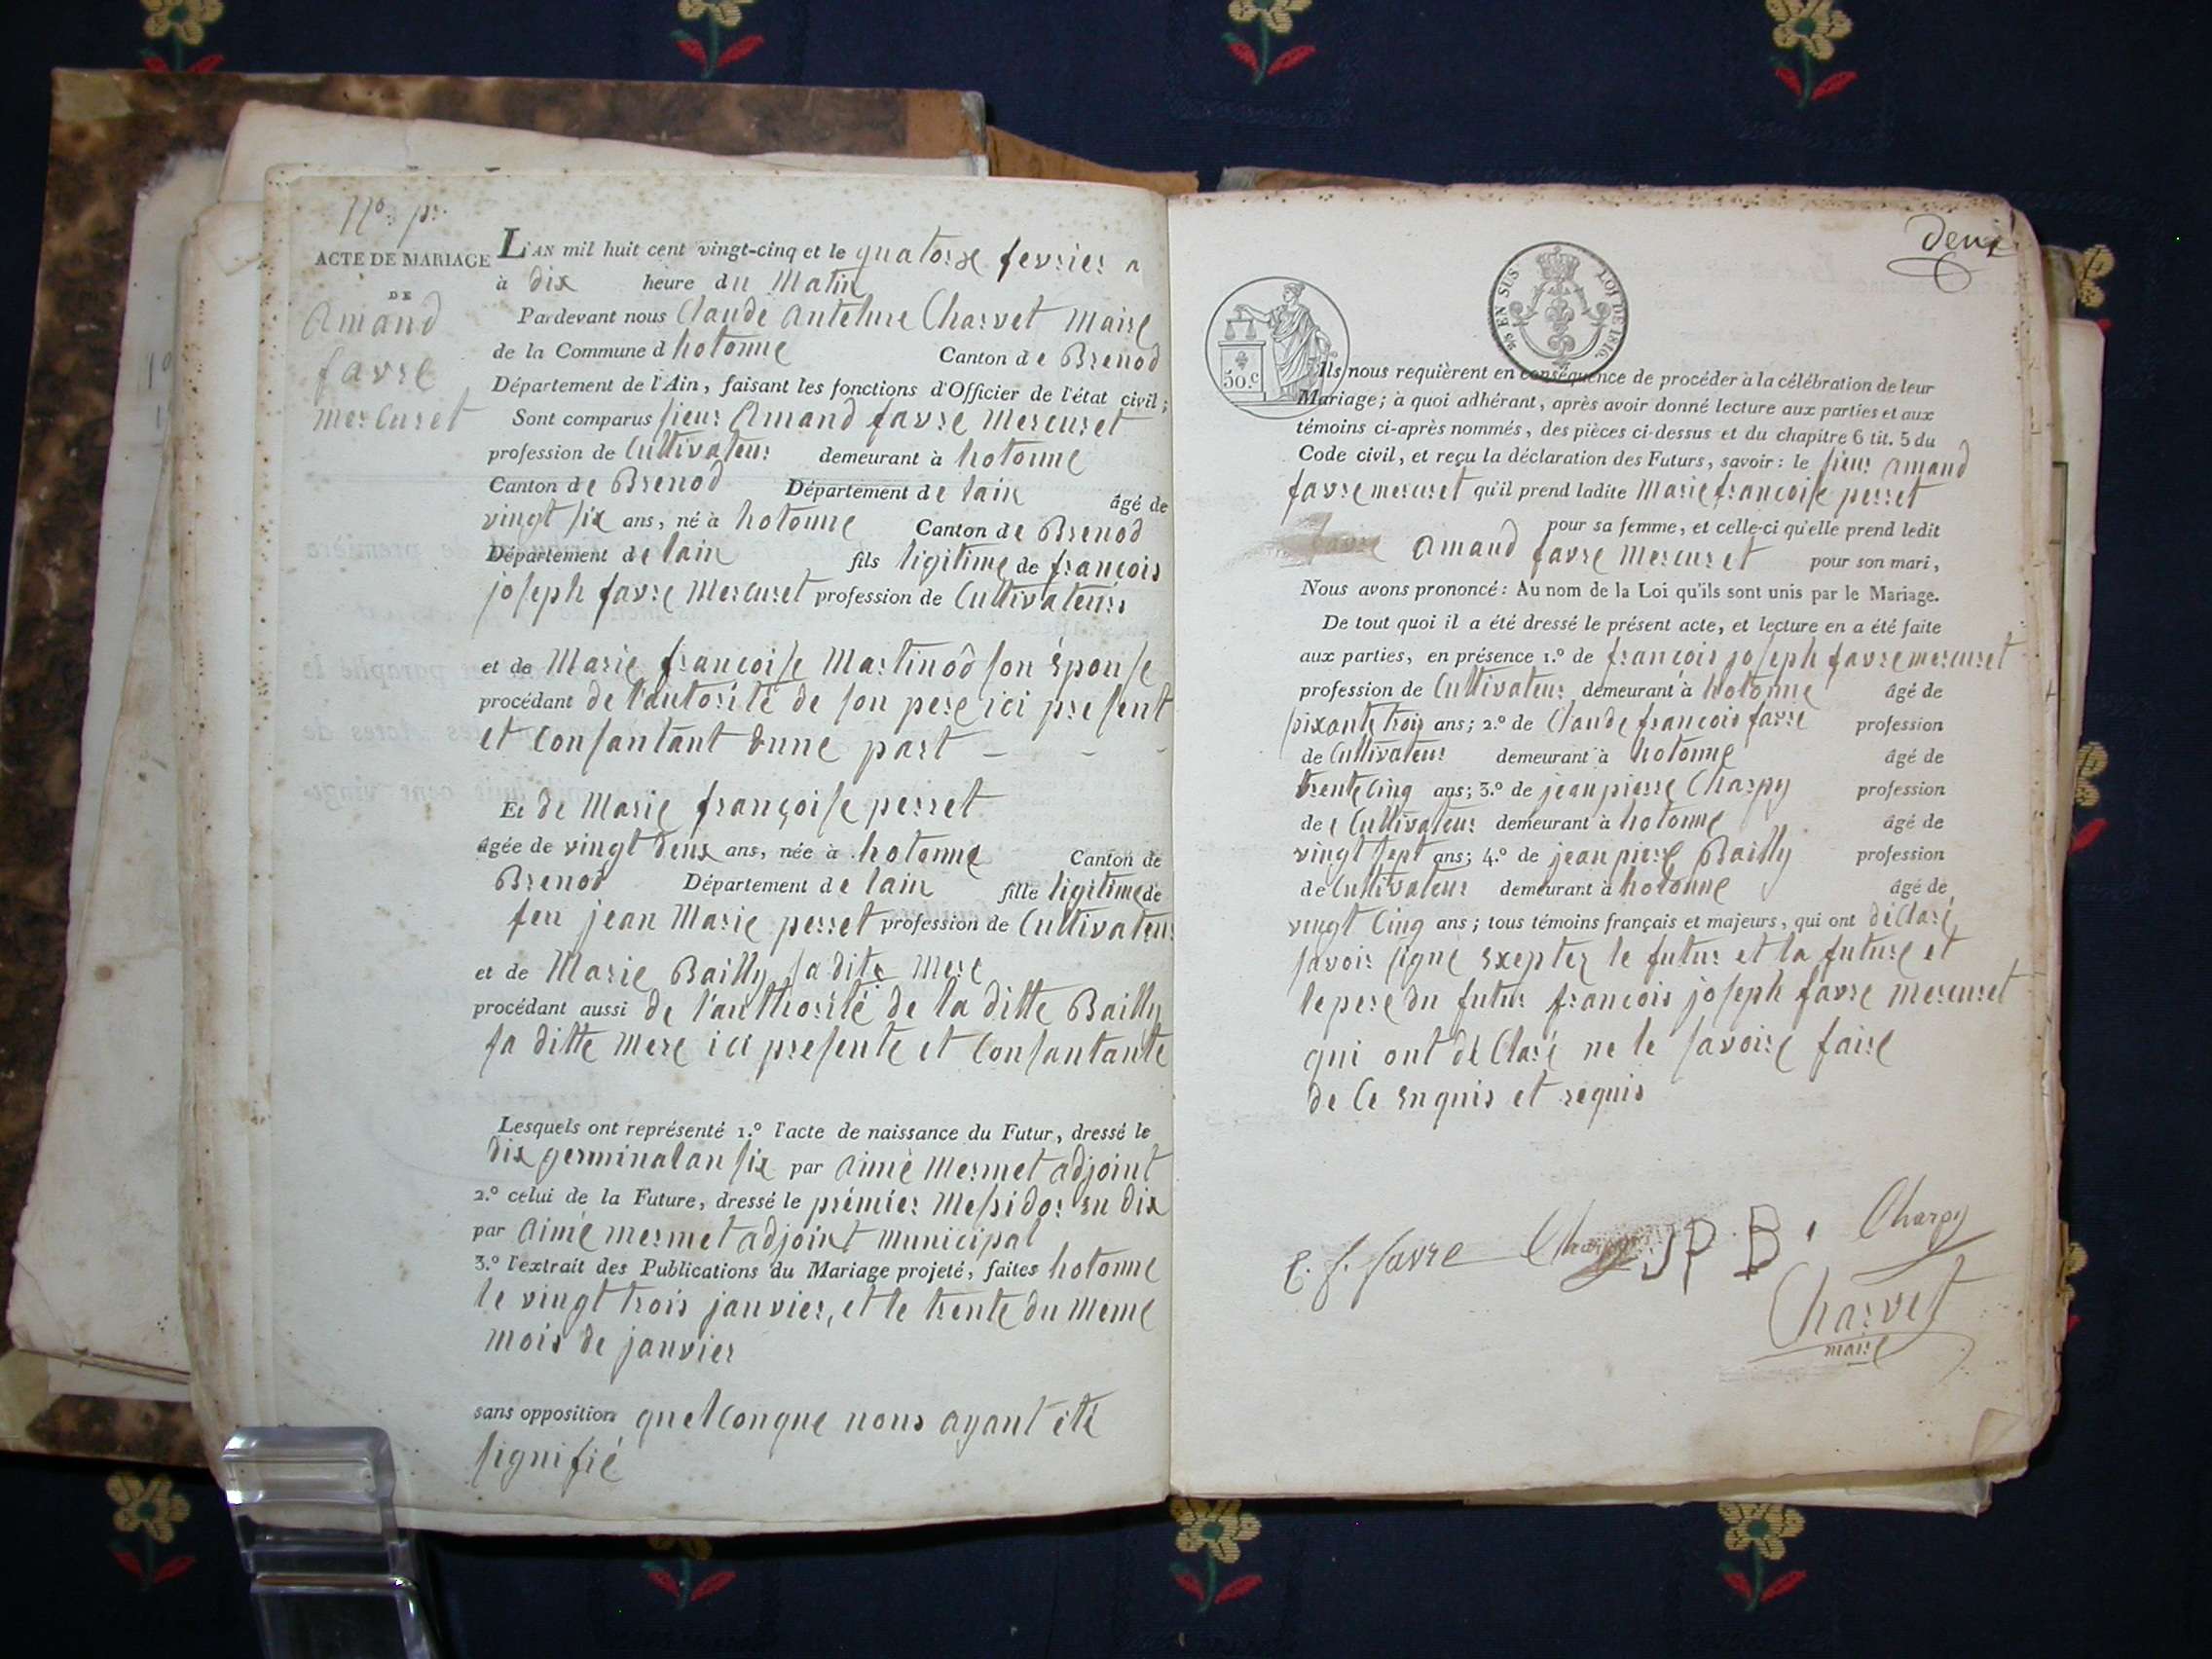 N.º pr.
ACTE DE MARIAGE
DE
Amand
favre
mercuret
L'AN mil huit cent vingt-cinq et le quatorze fevrier a
à dix heure du Matin
Pardevant nous Claude Antelme Charvet Maire
de la Commune d hotonne Canton de Brenod
Département de l'Ain, faisant les fonctions d'Officier de l'état civil;
Sont comparus sieur Amand favre Mercuret
profession de Cultivateur demeurant à hotonne
Canton de Brenod Département de lain âgé de
vingt six ans, né à hotonne Canton de Brenod
Département de lain fils ligitime de françois
joseph favre Mercuret profession de Cultivateurs
et de Marie françoise Martinod son Épouse
procédant de l'autorité de son pere ici present
et Consantant dune part
Et de Marie françoise perret
âgée de vingt deux ans, née à hotonne Canton de
Brenod Département de lain fille ligitime de
feu jean Marie perret profession de Cultivateur
et de Marie Bailly sa dite Mere
procédant aussi de l'authorité de la ditte Bailly
sa ditte Mere ici presente et Consantante
Lesquels ont représenté 1.º l'acte de naissance du Futur, dressé le
dix germinal an six par Aimé Mermet adjoint
2.º celui de la Future, dressé le prémier Messidor en dix
par Aimé mermet adjoint municipal
3.º l'extrait des Publications du Mariage projeté, faites hotonne
le vingt trois janvier, et le trente du meme
mois de janvier
sans opposition quelconque nous ayant été
signifié
deux
25 EN SUS
LOI DE 1816.
50.c
Ils nous requièrent en conséquence de procéder à la célébration de leur
Mariage; à quoi adhérant, après avoir donné lecture aux parties et aux
témoins ci-après nommés, des pièces ci-dessus et du chapitre 6 tit. 5 du
Code civil, et reçu la déclaration des Futurs, savoir: le sieur amand
favre mercuret qu'il prend ladite Marie francoise perret
pour sa femme, et celle-ci qu'elle prend ledit
favre Amand favre Mercuret pour son mari,
Nous avons prononcé: Au nom de la Loi qu'ils sont unis par le Mariage.
De tout quoi il a été dressé le présent acte, et lecture en a été faite
aux parties, en présence 1.º de francois joseph favre mercuret
profession de Cultivateur demeurant à hotonne âgé de
soixante trois ans; 2.º de Claude francois favre profession
de Cultivateur demeurant à hotonne âgé de
trente Cinq ans; 3.º de jean pierre Charpy profession
de Cultivateur demeurant à hotonne âgé de
vingt sept ans; 4.º de jean pierre Bailly profession
de Cultivateur demeurant à hotonne âgé de
vingt Cinq ans; tous témoins français et majeurs, qui ont déClaré
savoir signé Exepter le futur et la future et
le pere du futur francois joseph favre mercuret
qui ont déClaré ne le savoire faire
de Ce Enquis et requis
C. f. favre JPB Charpy
Charvet
maire